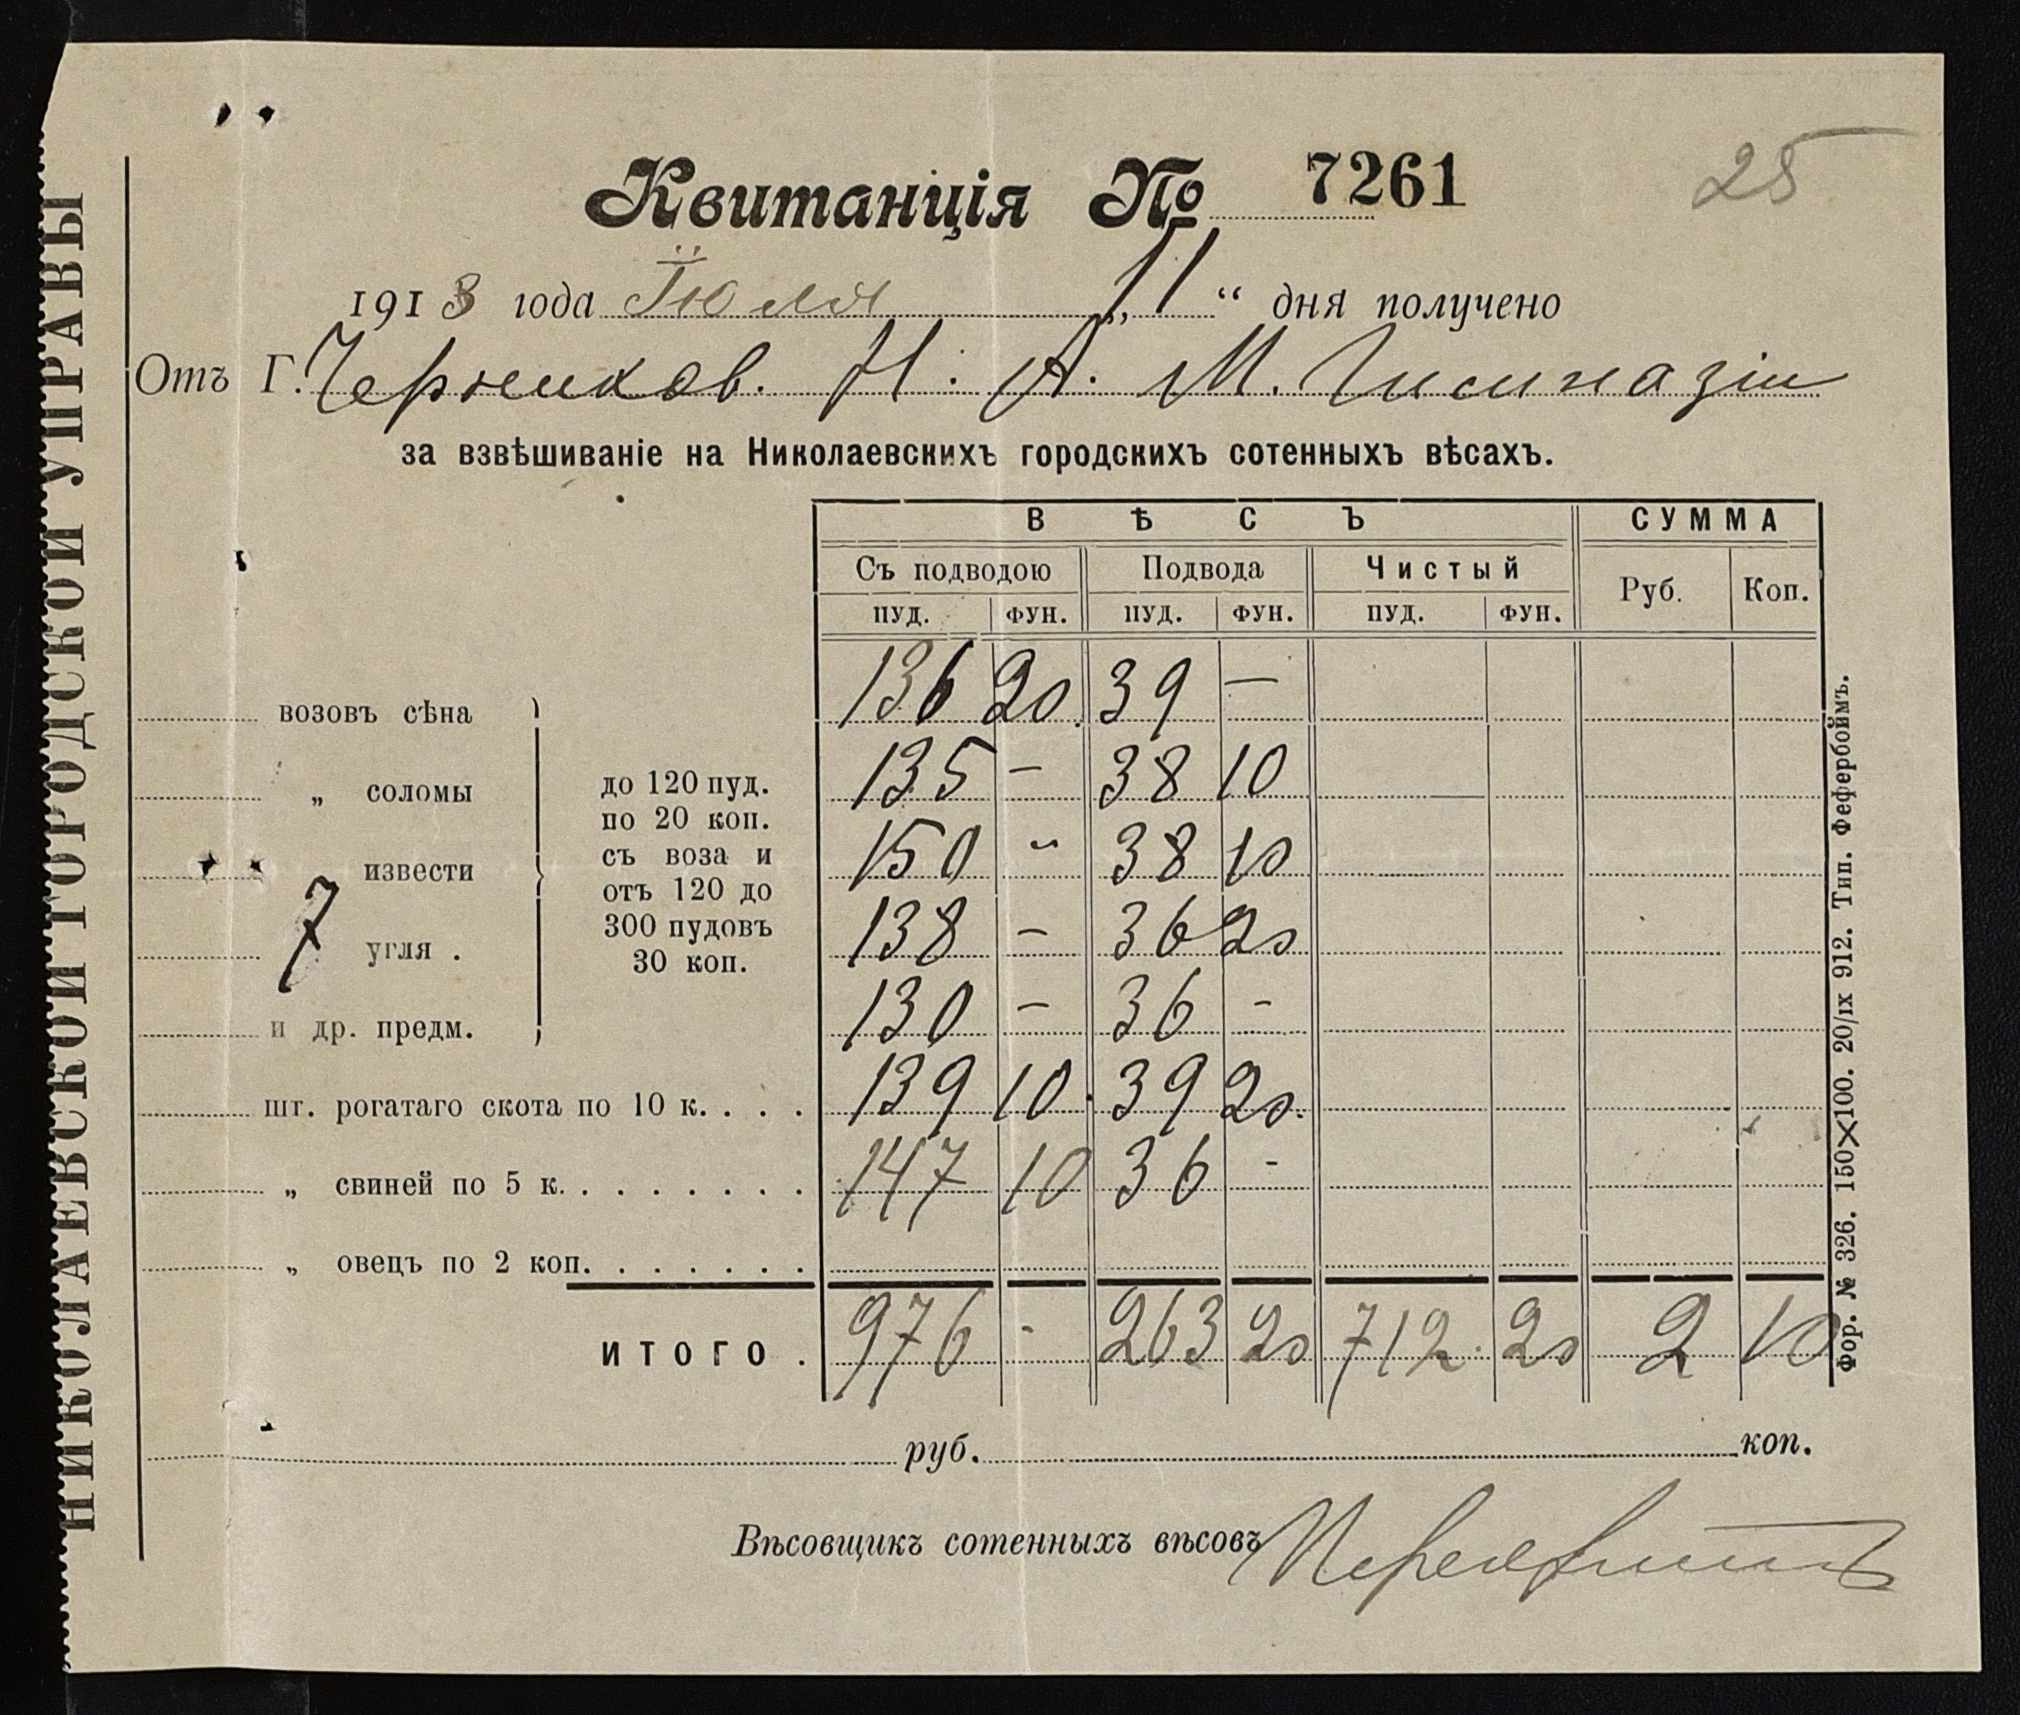 НИКОЛАЕВСКОЙ ГОРОДСКОЙ УПРАВЫ
25
Квитанція № 7261
1913 года Іюля „11“ дня получено
Отъ Г. Черников. Н. А. М. Гимназіи
за взвѣшиваніе на Николаевскихъ городскихъ сотенныхъ вѣсахъ.
ВѢСЪ СУММА
Съ подводою Подвода Чистый Руб. Коп.
пуд. фун. пуд. фун. пуд. фун.
136 20. 39 —
возовъ сѣна
135 — 38 10
„ соломы
до 120 пуд.
по 20 коп.
съ воза и
отъ 120 до
300 пудовъ
30 коп.
150 „ 38 10
извести
138 — 36 20
7 угля .
130 — 36 -
и др. предм.
139 10. 39 20.
шт. рогатаго скота по 10 к. . . .
147 10 36 -
„ свиней по 5 к. . . . . . . .
„ овецъ по 2 коп. . . . . . .
ИТОГО . 976 - 263 20 712. 20 2 10
руб. коп.
Вѣсовщикъ сотенныхъ вѣсовъ
Фор. № 326. 150×100. 20/ix 912. Тип. Фефербоймъ.